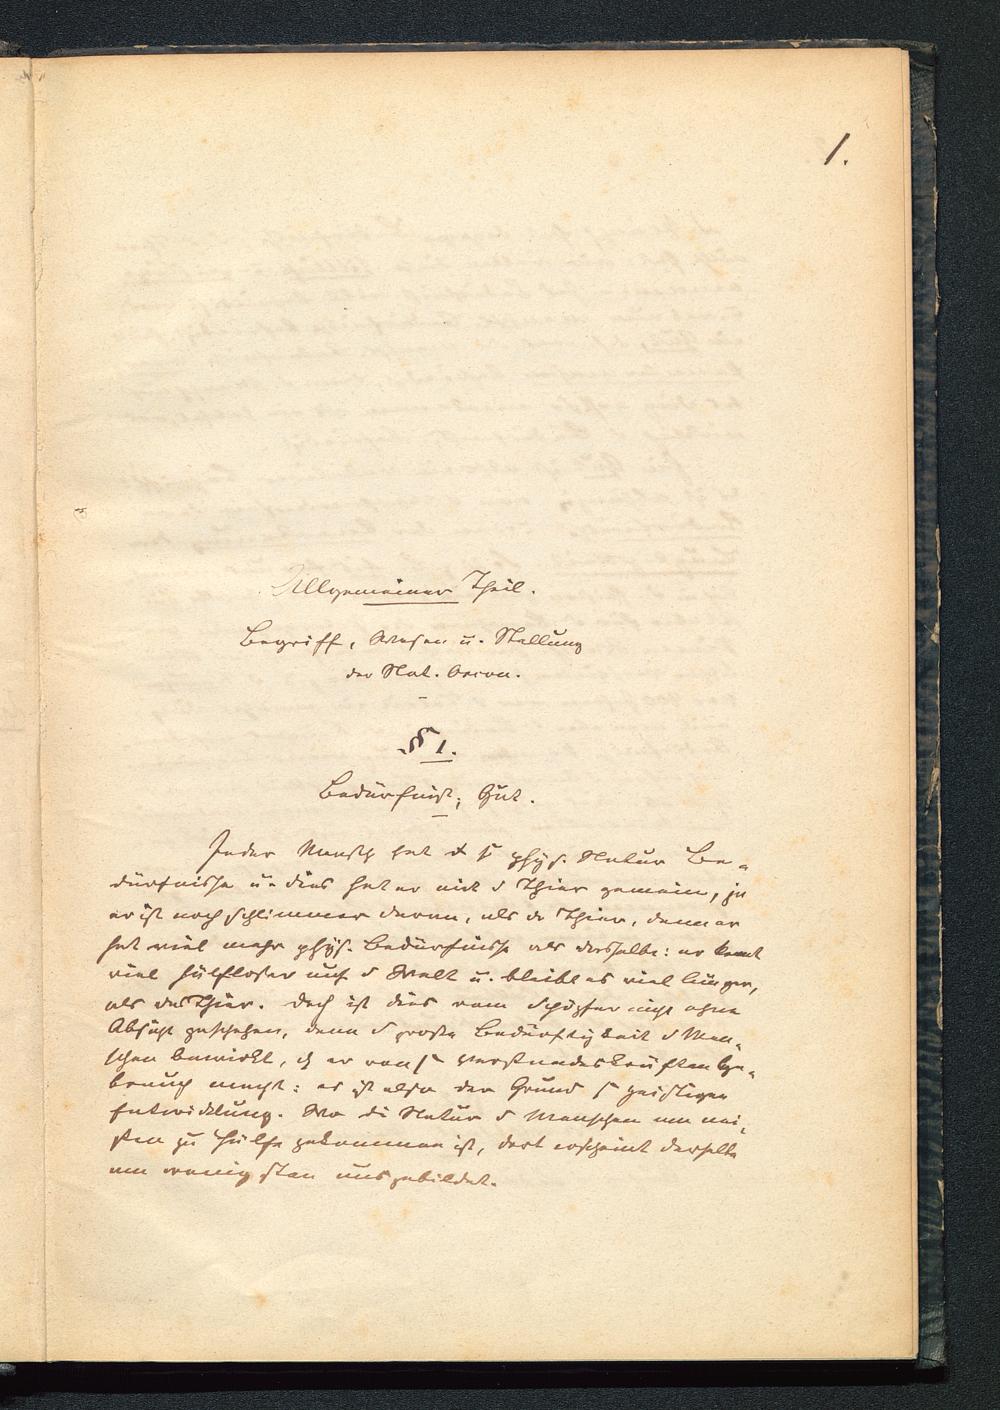 1.
Allgemeiner Theil.
Begriff, Wesen u. Stellung
der Nat. Oecon.
§ 1.
Bedürfniß; Gut.
Jeder Mensch hat phys. Natur Be-
dürfnisse u. dies hat er mit d Thier gemein, ja
er ist noch schlimmer daran, als d Thier, denn er
hat viel mehr phys. Bedürfnisse als dasselbe: er kommt
viel hülfloser auf d Welt u. bleibt es viel länger,
als das Thier. Doch ist dies vom Schöpfer nicht ohne
Absicht geschehen, denn d große Bedürftigkeit d Men-
schen bewirkt, er von s Verstandeskräften Ge-
brauch macht: es ist also der Grund s geistigen
Entwicklung. Wo di Natur d Menschen am mei-
sten zu Hülfe gekommen ist, dort erscheint derselbe
am wenigsten ausgebildet.